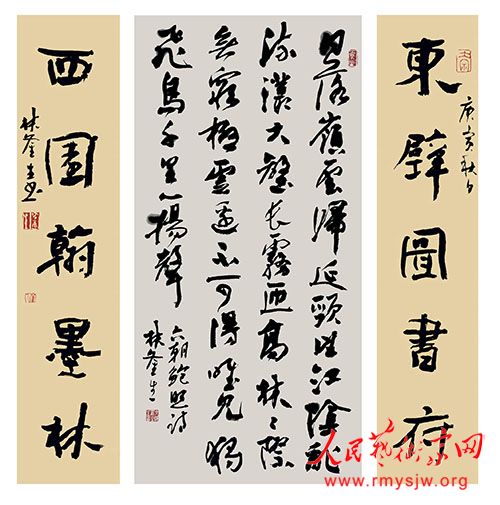 庚寅秋日
東壁圖書府
日落嶺雲歸延頸望江陰亂
流灇大壑長霧匝高林々際
無窮極雲邊不可得唯見獨
飛鳥千里一揚聲
六朝鮑照詩
林生
西園翰墨林
林生書
人民艺术家网
www.rmysjw.org